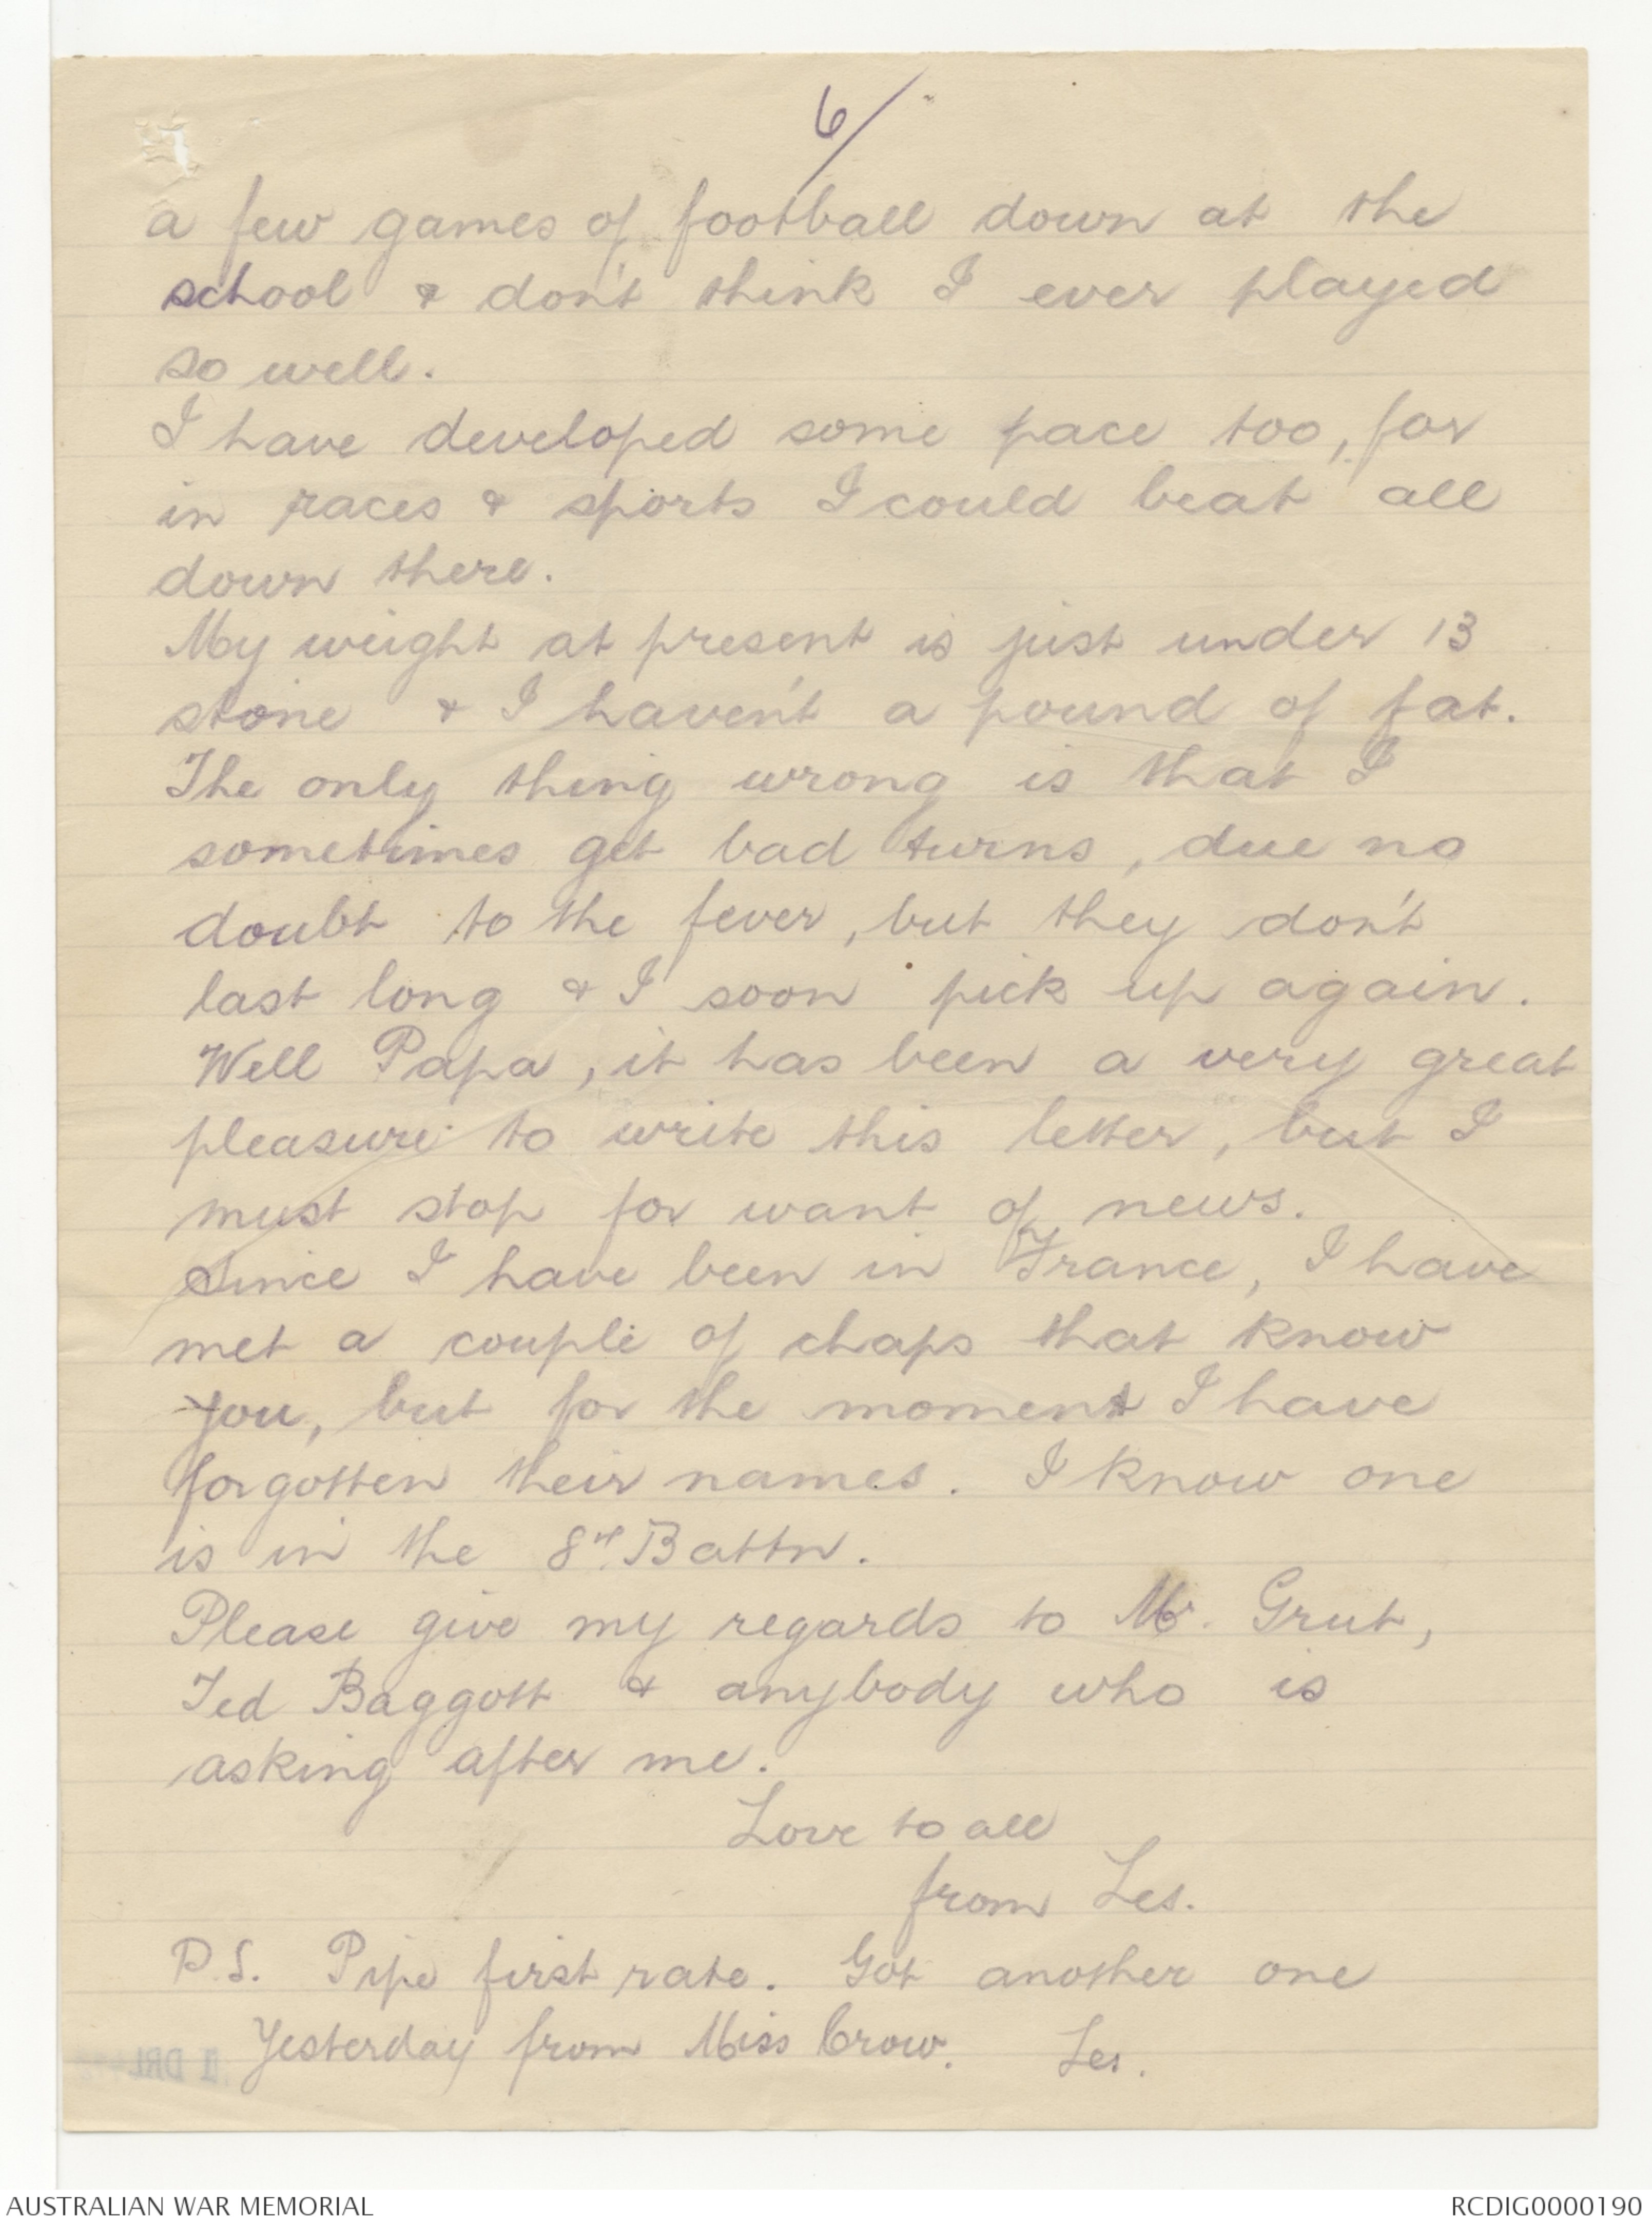 6/
a few games of football down at the
school & don't think I ever played
so well.
I have developed some pace too, for
in races & sports I could beat all
down there.
My weight at present is just under 13
stone & I haven't a pound of fat.
The only thing wrong is that I
sometimes get bad turns, due no
doubt to the fever, but they don't
last long & I soon pick up again.
Well Papa, it has been a very great
pleasure to write this letter, but I
must stop for want of news.
Since I have been in France, I have
met a couple of chaps that know
you, but for the moment I have
forgotten their names. I know one
is in the 8th Battn.
Please give my regards to Mr. Grut,
Ted Baggott & anybody who is
asking after me.
Love to all
from Les.
P.S. Pipe first rate. Got another one
Yesterday from Miss Crow. Les.
1 DRL
AUSTRALIAN WAR MEMORIAL
RCDIG0000190